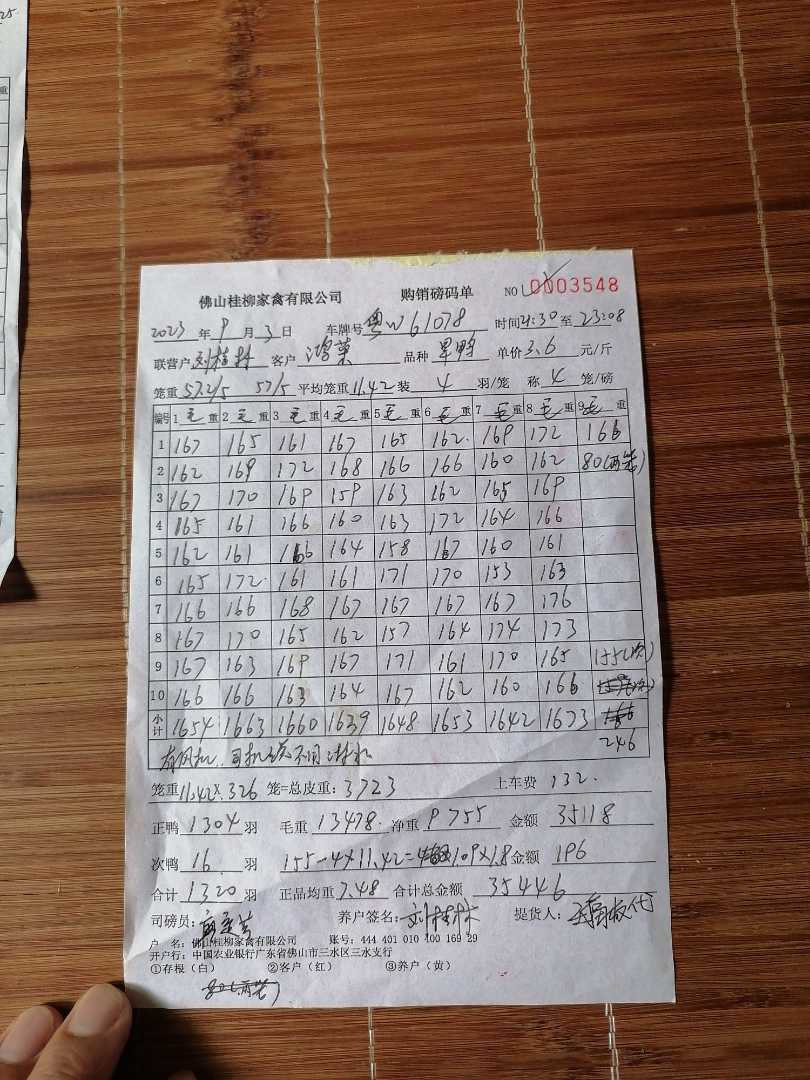 25.
重
佛山桂柳家禽有限公司 购销磅码单 NO 0003548
2023 年 9 月 3 日 车牌号 粤W61078 时间 21:30 至 23:08
联营户 刘桂林 客户 鸿 品种 单价 3.6 元/斤
笼重 57.2/5 57/5 平均笼重 11.42 装 4 羽/笼 称 4 笼/磅
编号 1 毛 重 2 毛 重 3 毛 重 4 毛 重 5 毛 重 6 毛 重 7 毛 重 8 毛 重 9 毛 重
1 167 165 161 167 165 162 169 172 166
2 162 169 172 168 166 166 160 162 80(两笼)
3 167 170 169 159 163 162 165 169
4 165 161 166 160 163 172 164 166
5 162 161 166 164 158 167 160 161
6 165 172 161 161 171 170 153 163
7 166 166 168 167 167 167 167 176
8 167 170 165 162 157 164 174 173
9 167 163 169 167 171 161 170 165 155(次)
10 166 166 163 164 167 162 160 166
小计 1654 1663 1660 1639 1648 1653 1642 1673
246
有风机,司机 不同
笼重 11.42 × 326 笼=总皮重: 3723 上车费 132.
正鸭 1304 羽 毛重 13478 净重 9755 金额 35118
次鸭 16 羽 155-4×11.42= 109×1.8 金额 196
合计 1320 羽 正品均重 7.48 合计总金额 35446
司磅员: 养户签名: 刘桂林 提货人: 代
户 名: 佛山桂柳家禽有限公司 账号: 444 401 010 400 169 29
开户行: 中国农业银行广东省佛山市三水区三水支行
①存根(白) ②客户(红) ③养户(黄)
80(两笼)